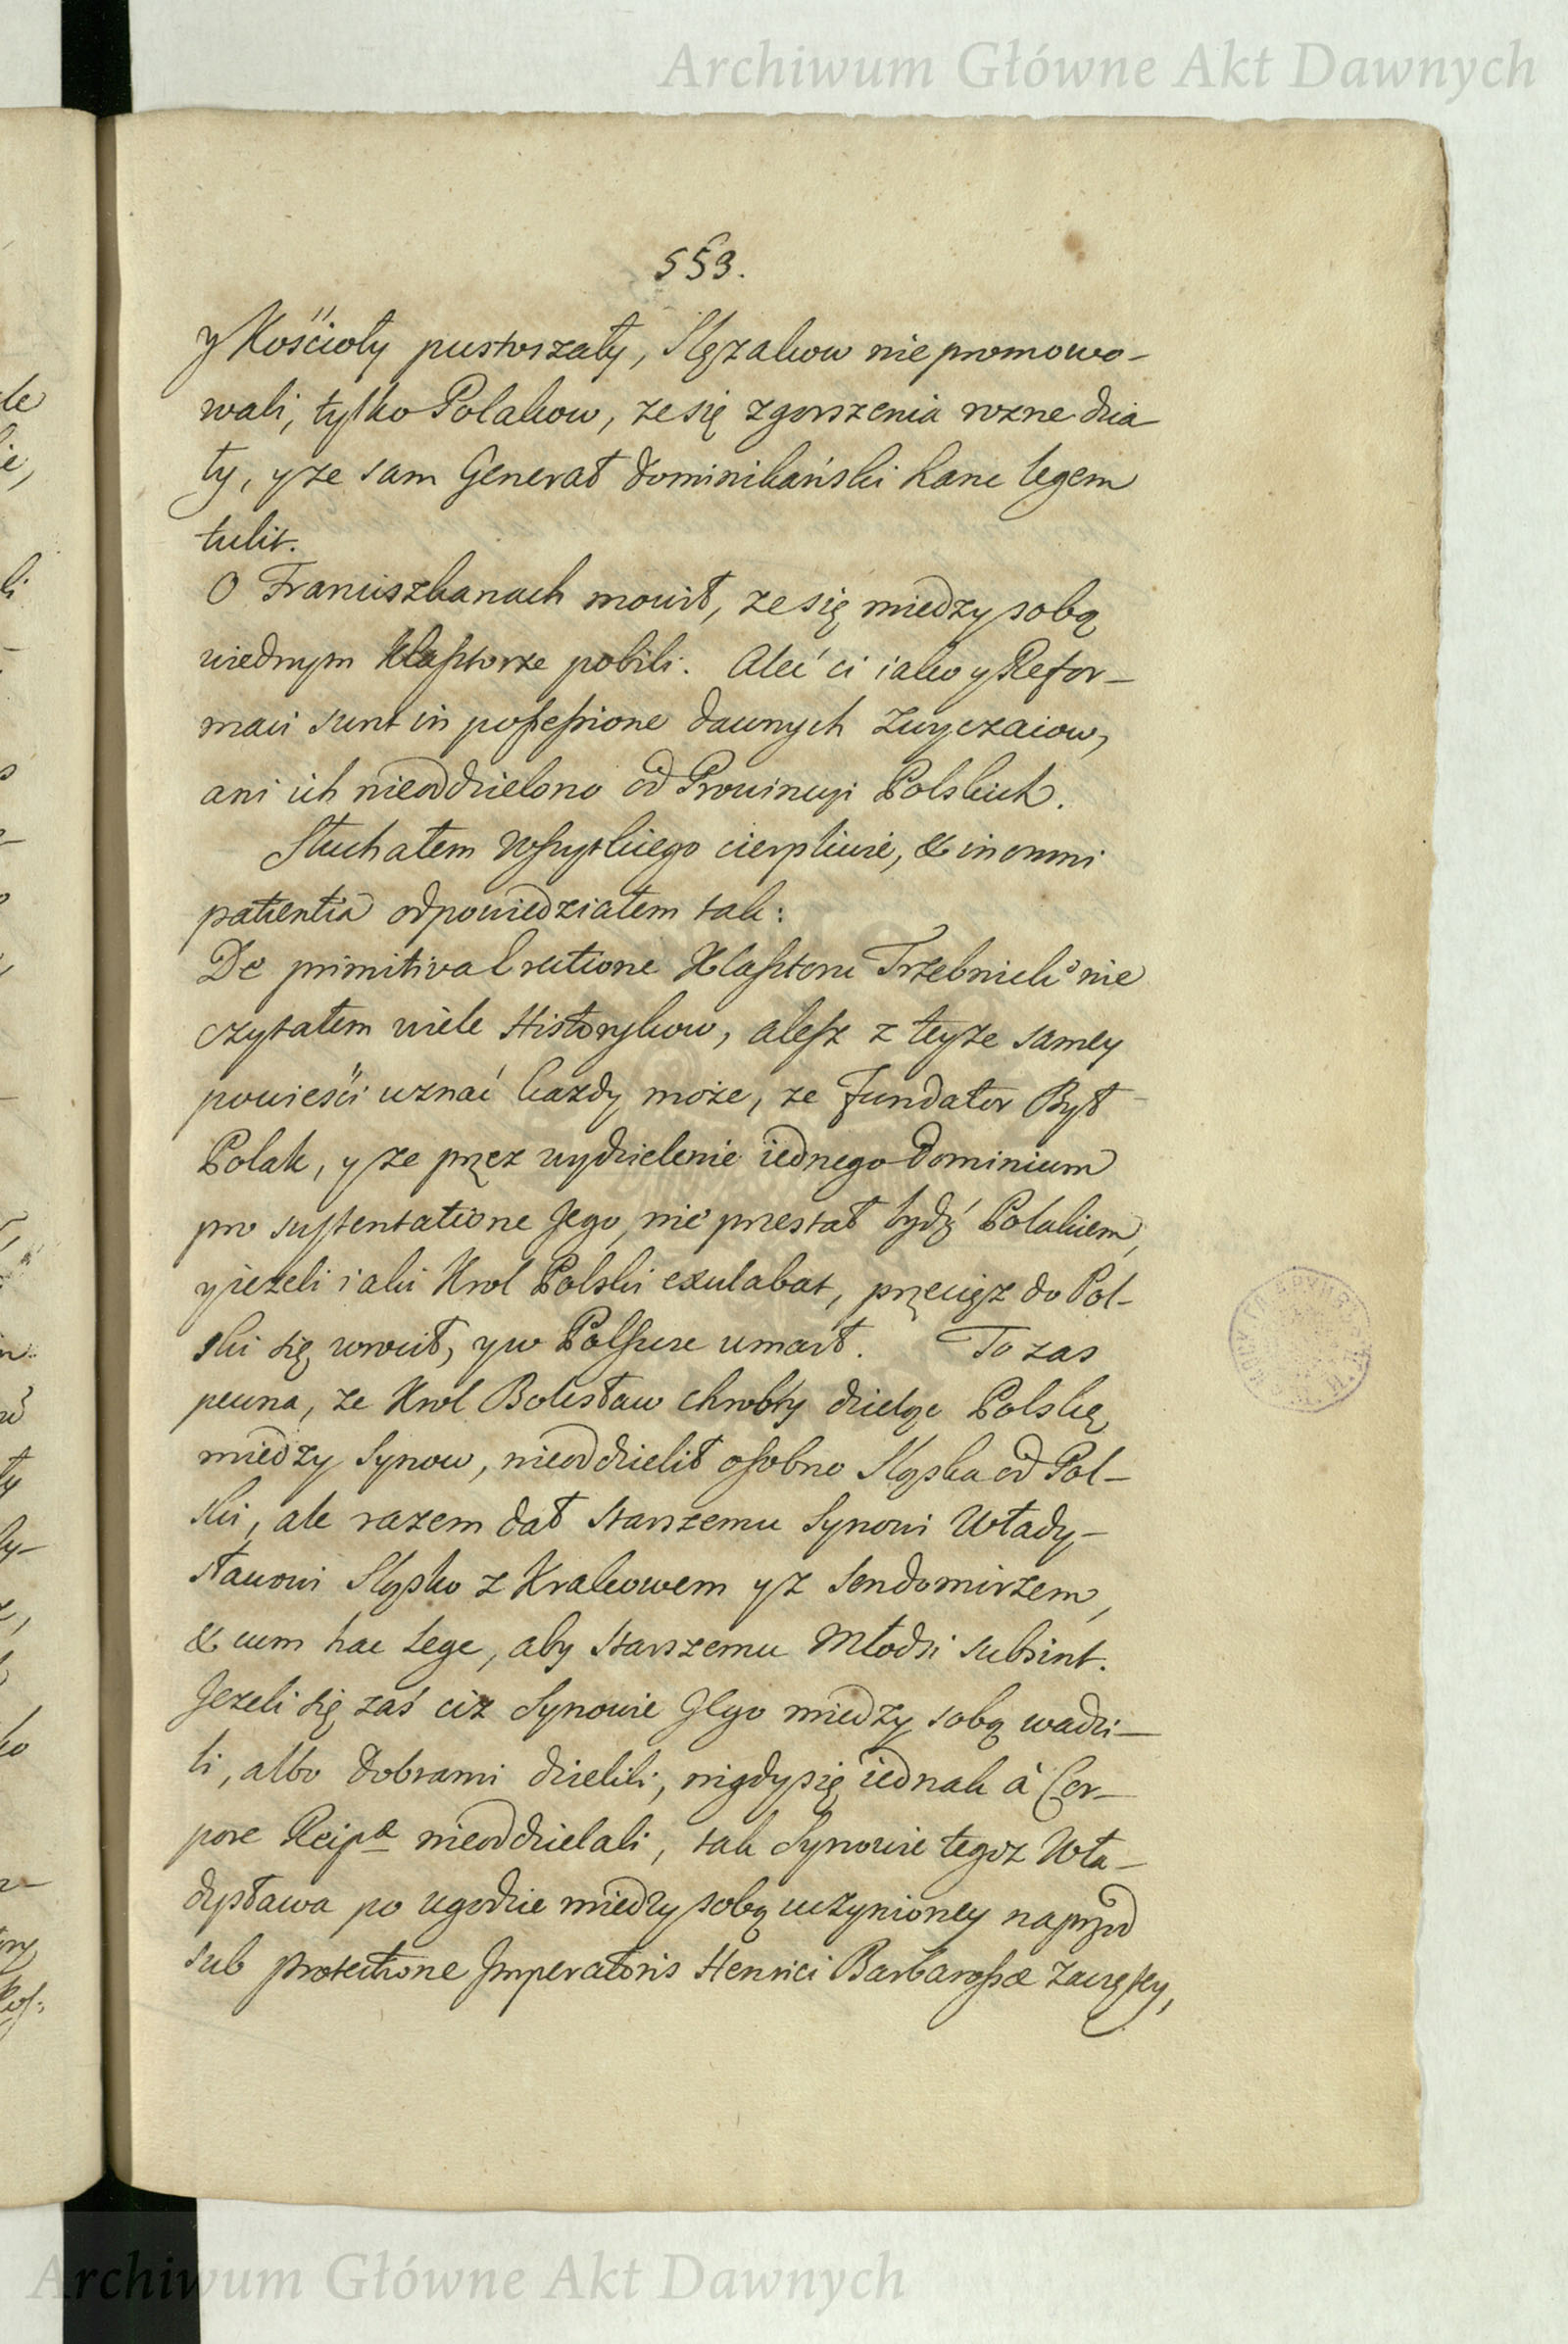 Archiwum Główne Akt Dawnych
553.
y Kościoły pustoszały, Slęzakow nie promowo-
wali, tylko Polakow, ze się zgorszenia rozne dzia-
ły, y ze sam Generał Dominikański hanc legem
tulit.
O Franciszkanach mowił, ze się między sobą
wiednym Klasztorze pobili. Aleć ci iako y Refor-
maci sunt in possessione dawnych zwyczaiow,
ani ich nieoddzielono od Prowincyi Polskich.
Słuchałem wszystkiego cierpliwie, & in omni
patientia odpowiedziałem tak:
De primitiva Erectione Klasztoru Trzebnick° nie
czytałem wiele Historykow, alesz z teyze samey
powieści uznać kazdy może, ze Fundator Był
Polak, y ze przez wydzielenie iednego Dominium
pro sustentatione Jego, nie przestał bydź Polakiem,
y iezeli iaki Krol Polski exulabat, przecięz do Pol-
ski się wrocił, y w Polszcze umarł. To zas
pewna, ze Krol Bolesław chrobry dzieląc Polskę
między Synow, nieoddzielił osobno Sląska od Pol-
ski, ale razem dał starszemu Synowi Włady-
sławowi Sląsko z Krakowem y z Sendomirzem,
& cum hac Lege, aby starszemu Młodsi subsint.
Jezeli się zaś ciz Synowie Jego między sobą wadzi-
li, albo Dobrami dzielili, nigdy się iednak à Cor-
pore Reipæ nieoddzielali, tak Synowie tegoz Wła-
dysława po ugodzie między sobą uczynioney naprzod
sub protectione Imperatoris Henrici Barbarossæ zawzętey,
Archiwum Główne Akt Dawnych